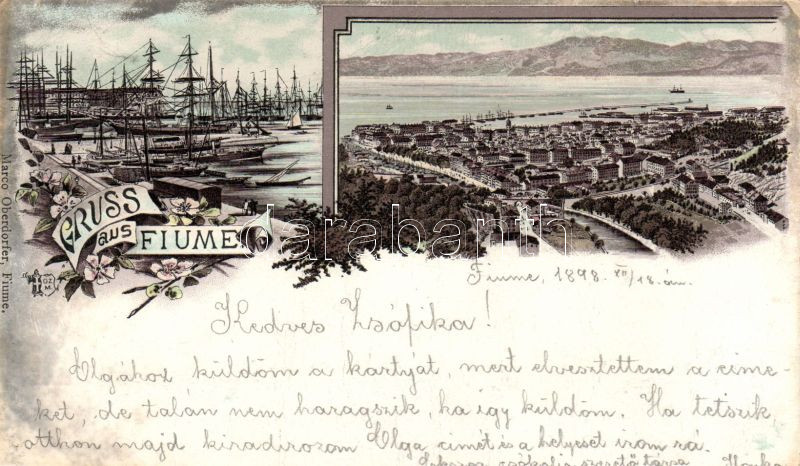 GRUSS
aus
FIUME
darabanth
Marco Oberdorfer, Fiume.
Fiume, 1898. XII/18.án.
Kedves Zsófika!
Olgához küldöm a kártyát, mert elvesztettem a cime-
ket, de talán nem haragszik, ha így küldöm. Ha tetszik
otthon majd kiradirozom Olga címét és a helyeset irom rá.
csókolja szerető társa